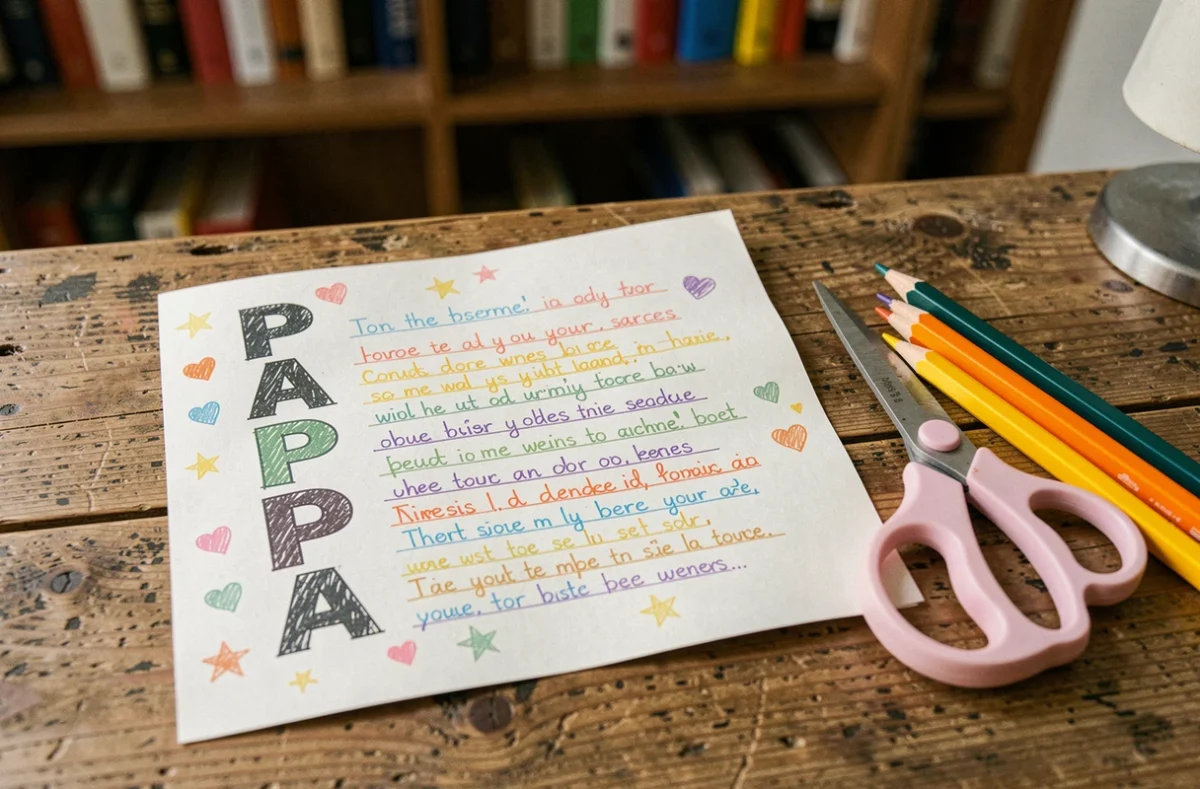 PAPPA
Ton the bserme! ia ody tvor
tovoe te al y ou your, sarces
Conut dore wnes bi oxe in havie,
so me wal ys yiubt laand,
wiol he ut od urmijy toore ba·w
obue bijsr yobles tnie seadue
peud io me weins to aichne! boet
vhee touc an dor oo, kenes
Kinesis l.d dendee id, fomaix aia
Thert sioue m ly bere your
wae wst toe se lu set solr,
Tae yout te mbe tn sie la touce..
youe, tor biste bee weners...